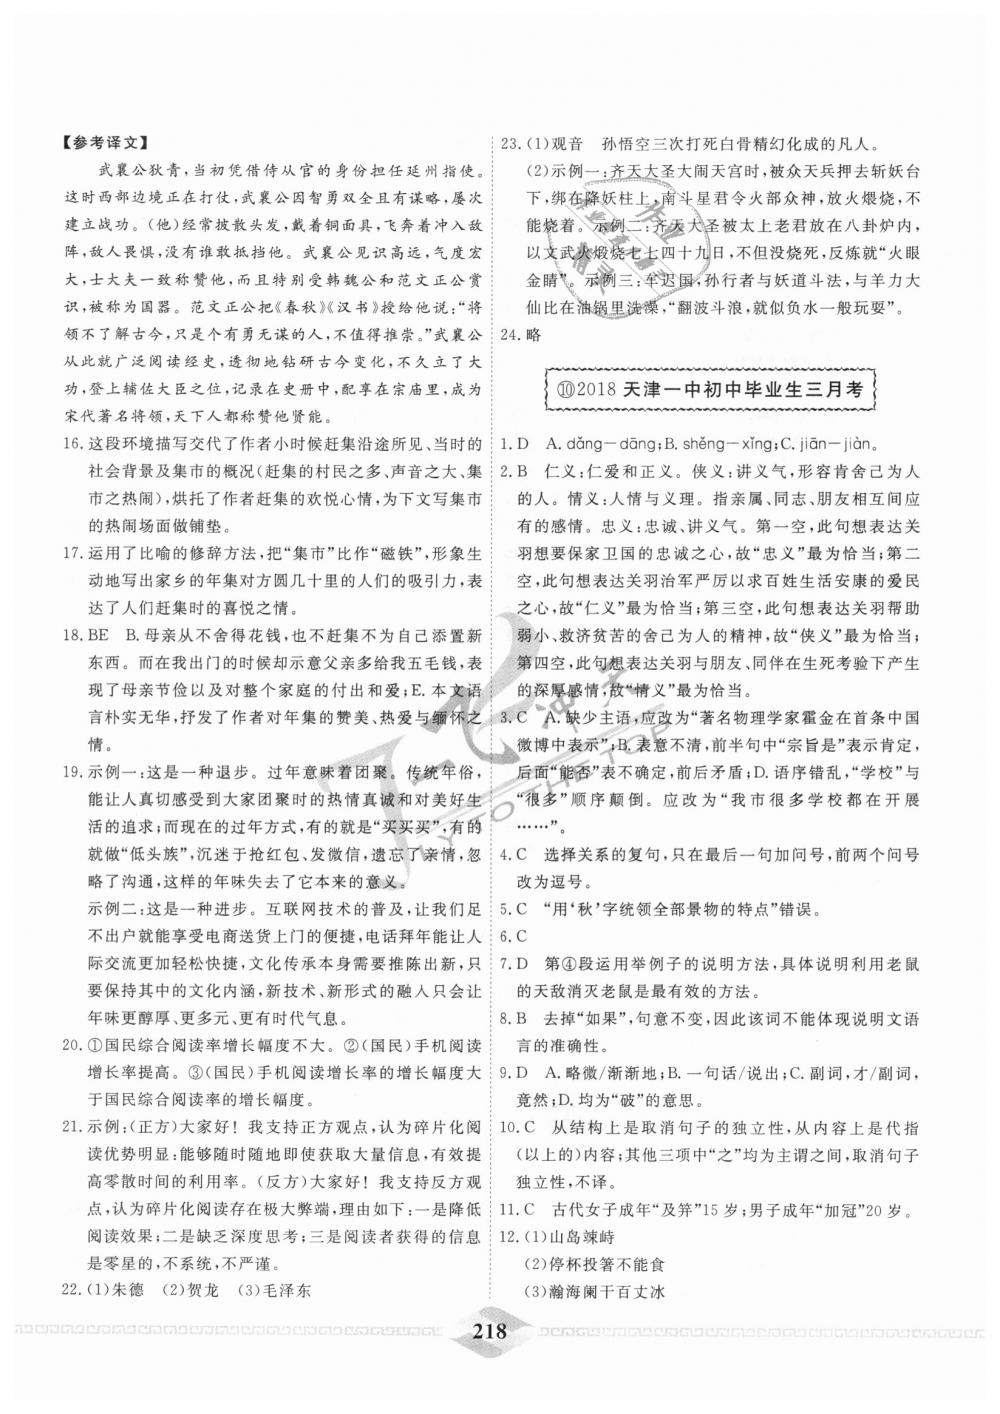 【参考译文】
武襄公狄青，当初凭借侍从官的身份担任延州指使。
这时西部边境正在打仗，武襄公因智勇双全且有谋略，屡次
建立战功。(他)经常披散头发，戴着铜面具，飞奔着冲入敌
阵，敌人畏惧，没有谁敢抵挡他。武襄公见识高远，气度宏
大，士大夫一致称赞他，而且特别受韩魏公和范文正公赏
识，被称为国器。范文正公把《春秋》《汉书》授给他说：“将
领不了解古今，只是个有勇无谋的人，不值得推崇。”武襄公
从此就广泛阅读经史，透彻地钻研古今变化，积累了大
功，登上辅佐大臣之位，记录在史册中，配享在宗庙里，成为
宋代著名将领，天下人都称赞他贤能。
16. 这段环境描写交代了作者小时候赶集沿途所见、当时的
社会背景及集市的概况(赶集的村民之多、声音之大、集
市之热闹)，烘托了作者赶集的欢悦心情，为下文写集市
的热闹场面做铺垫。
17. 运用了比喻的修辞方法，把“集市”比作“磁铁”，形象生
动地写出家乡的年集对方圆几十里的人们的吸引力，表
达了人们赶集时的喜悦之情。
18. BE　B. 母亲从不舍得花钱，也不赶集不为自己添置新
东西。而在我出门的时候却示意父亲多给我五毛钱，表
现了母亲节俭以及对整个家庭的付出和爱；E. 本文语
言朴实无华，抒发了作者对年集的赞美、热爱与缅怀之
情。
19. 示例一：这是一种退步。过年意味着团聚。传统年俗，
能让人真切感受到大家团聚时的热情真诚和对美好生
活的追求；而现在的过年方式，有的就“买买买”，有的
就做“低头族”，沉迷于抢红包、发微信，遗忘了亲情，忽
略了沟通，这样的年味失去了它本来的意义。
示例二：这是一种进步。互联网技术的普及，让我们足
不出户就能享受电商送货上门的便捷，电话拜年能让人
际交流更加轻松快捷，文化传承本身需要推陈出新，只
要保持其中的文化内涵，新技术、新形式的融入只会让
年味更醇厚、更多元、更有时代气息。
20. ①国民综合阅读率增长幅度不大。②(国民)手机阅读
增长率提高。③(国民)手机阅读增长率的增长幅度大
于国民综合阅读率的增长幅度。
21. 示例：(正方)大家好！我支持正方观点，认为碎片化阅
读优势明显：能够随时随地即时获取大量信息，有效提
高零散时间的利用率。(反方)大家好！我支持反方观
点，认为碎片化阅读存在极大弊端，理由如下：一是降低
阅读效率；二是缺乏深度思考；三是阅读者获得的信息
是零星的，不系统，不严谨。
22. (1)朱德　(2)贺龙　(3)毛泽东
23. (1)观音　孙悟空三次打死白骨精幻化成的凡人。
(2)示例一：齐天大圣大闹天宫时，被众天兵押去斩妖台
下，绑在降妖柱上，南斗星君令火部众神，放火煨烧，不
能烧着。示例二：齐天大圣被太上老君放在八卦炉内，
以文武火煅烧七七四十九日，不但没烧死，反炼就“火眼
金睛”。示例三：车迟国，孙行者与妖道斗法，与羊力大
仙比在油锅里洗澡，“翻波斗浪，就似负水一般玩耍”。
24. 略
⑩2018 天津一中初中毕业生三月考
1. D　A. dǎng—dāng；B. shěng—xǐng；C. jiān—jiàn。
2. B　仁义：仁爱和正义。侠义：讲义气，形容肯舍己为人
的人。情义：人情与义理。指亲属、同志、朋友相互间应
有的感情。忠义：忠诚、讲义气。第一空，此句想表达关
羽想要保家卫国的忠诚之心，故“忠义”最为恰当；第二
空，此句想表达关羽治军严厉以求百姓生活安康的爱民
之心，故“仁义”最为恰当；第三空，此句想表达关羽帮助
弱小、救济贫苦的舍己为人的精神，故“侠义”最为恰当；
第四空，此句想表达关羽与朋友、同伴在生死考验下产生
的深厚感情，故“情义”最为恰当。
3. C　A. 缺少主语，应改为“著名物理学家霍金在首条中国
微博中表示”；B. 表意不清，前半句中“宗旨是”表示肯定，
后面“能否”表不确定，前后矛盾；D. 语序错乱，“学校”与
“很多”顺序颠倒。应改为“我市很多学校都在开展
……”。
4. C　选择关系的复句，只在最后一句加问号，前两个问号
改为逗号。
5. C　“用‘秋’字统领全部景物的特点”错误。
6. C
7. D　第④段运用举例子的说明方法，具体说明利用老鼠
的天敌消灭老鼠是最有效的方法。
8. B　去掉“如果”，句意不变，因此该词不能体现说明文语
言的准确性。
9. D　A. 略微/渐渐地；B. 一句话/说出；C. 副词，才/副词，
竟然；D. 均为“破”的意思。
10. C　从结构上是取消句子的独立性，从内容上是代指
(以上的)内容；其他三项中“之”均为主谓之间，取消句子
独立性，不译。
11. C　古代女子成年“及笄”15 岁；男子成年“加冠”20 岁。
12. (1)山岛竦峙
(2)停杯投箸不能食
(3)瀚海阑干百丈冰
218